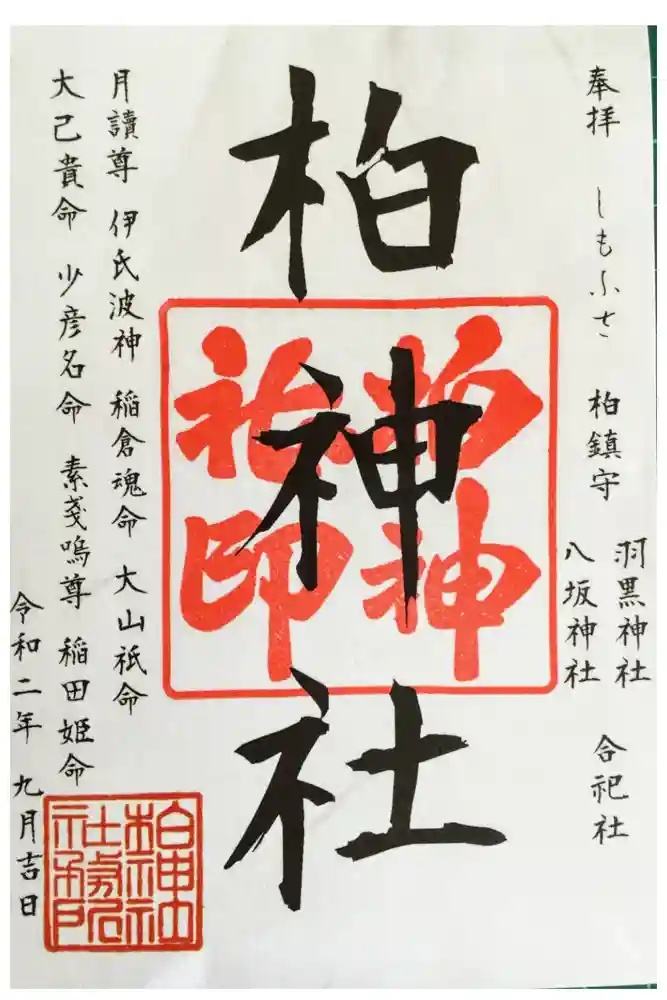 奉拝 しもふさ 柏鎮守
羽黒神社
八坂神社
合祀社
柏神社
柏神
社印
月讀尊 伊氐波神 稲倉魂命 大山祇命
大己貴命 少彦名命 素戔嗚尊 稲田姫命
令和二年 九月吉日
柏神社
社務所
之印